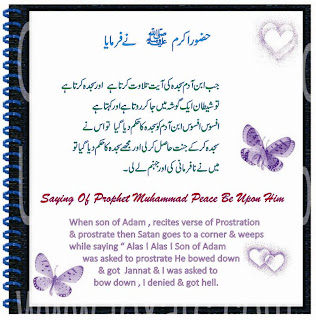 حضور اکرم ﷺ نے فرمایا
جب ابن آدم سجدہ کی آیت تلاوت کرتا ہے اور سجدہ کرتا ہے
تو شیطان ایک گوشہ میں جا کر روتا ہے اور کہتا ہے
افسوس افسوس ابن آدم کو سجدہ کا حکم دیا گیا تو اس نے
سجدہ کر کے جنت حاصل کر لی اور مجھے سجدہ کا حکم دیا گیا تو
میں نے نافرمانی کی اور جہنم لے لی۔
Saying Of Prophet Muhammad Peace Be Upon Him
When son of Adam , recites verse of Prostration
& prostrate then Satan goes to a corner & weeps
while saying “ Alas ! Alas ! Son of Adam
was asked to prostrate He bowed down
& got Jannat & I was asked to
bow down , I denied & got hell.